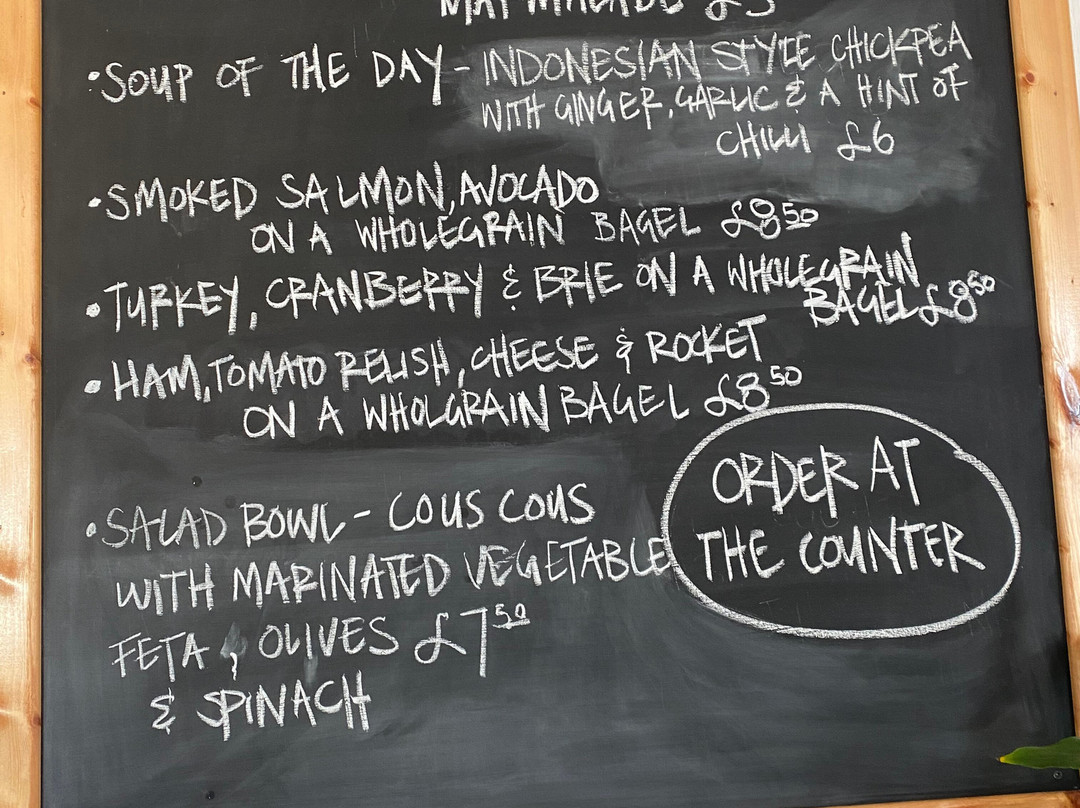 £5
• SOUP OF THE DAY - INDONESIAN STYLE CHICKPEA
WITH GINGER, GARLIC & A HINT OF
CHILLI £6
• SMOKED SALMON, AVOCADO
ON A WHOLEGRAIN BAGEL £8.50
• TURKEY, CRANBERRY & BRIE ON A WHOLEGRAIN
BAGEL £8.50
• HAM, TOMATO RELISH, CHEESE & ROCKET
ON A WHOLGRAIN BAGEL £8.50
ORDER AT
THE COUNTER
• SALAD BOWL - COUS COUS
WITH MARINATED VEGETABLE
FETA, OLIVES £7.50
& SPINACH